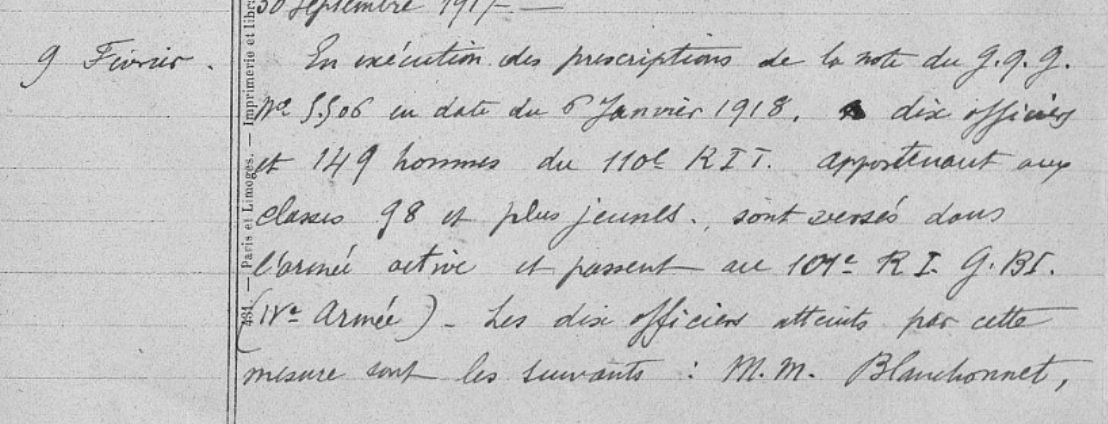 30 Septembre 1917. —
9 Février. En exécution des prescriptions de la note du G.Q.G.
N° 5506 en date du 6 Janvier 1918, dix officiers
et 149 hommes du 110e R I T. appartenant aux
classes 98 et plus jeunes, sont versés dans
l'armée active et passent au 101e R I. G.BI.
(IVe Armée) _ Les dix officiers atteints par cette
mesure sont les suivants : M.M. Blanchonnet,
431. — Paris et Limoges. — Imprimerie et libr